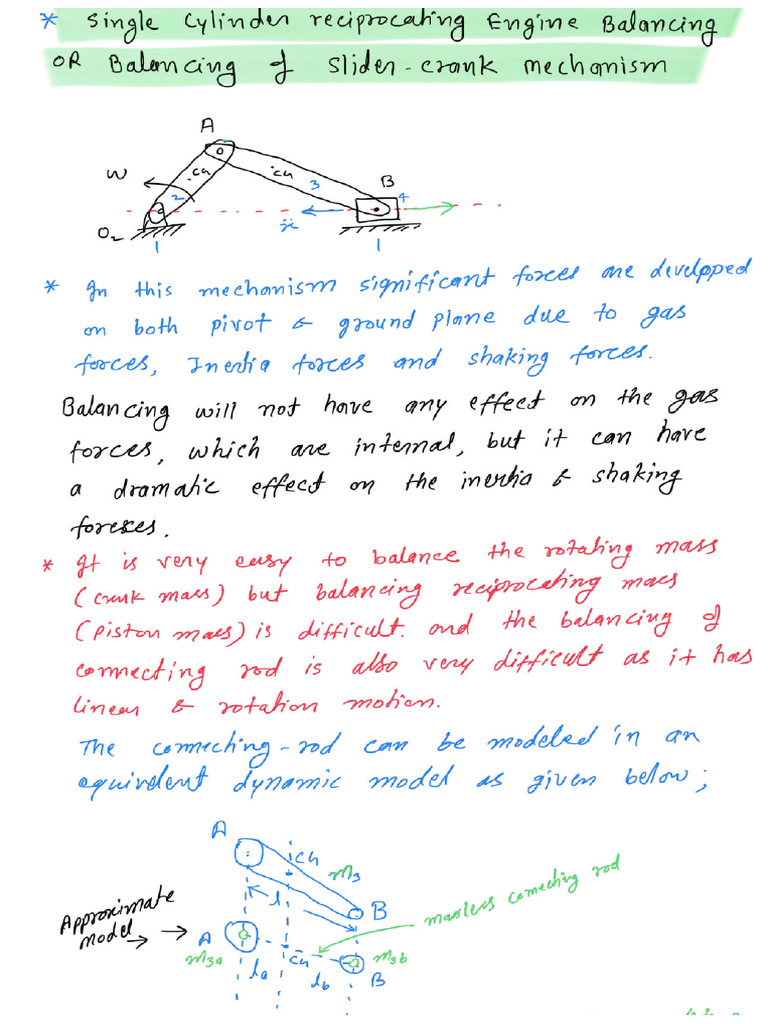 * Single Cylinder reciprocating Engine Balancing
OR Balancing of Slider-crank mechanism
A
W
.CG
.CG
2
3
B
4
O2
ẍ
1
1
* In this mechanism significant forces are developed
on both pivot & ground plane due to gas
forces, Inertia forces and shaking forces.
Balancing will not have any effect on the gas
forces, which are internal, but it can have
a dramatic effect on the inertia & shaking
forces.
* It is very easy to balance the rotating mass
(crank mass) but balancing reciprocating mass
(piston mass) is difficult. and the balancing of
connecting rod is also very difficult as it has
linear & rotation motion.
The connecting-rod can be modeled in an
equivalent dynamic model as given below;
A
CG
m3
l
B
massless connecting rod
Approximate
model
A
m3a
CG
m3b
la
lb
B